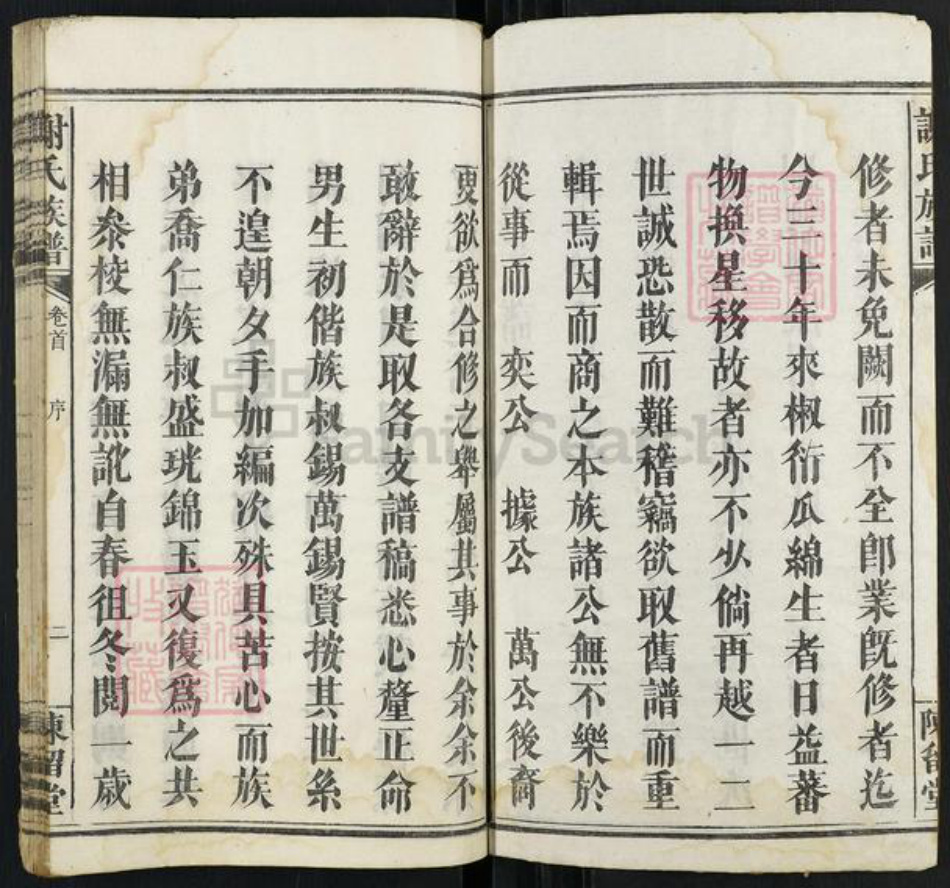 謝氏族譜
陳留堂
修者未免闕而不全即業既修者迄
今三十年來椒衍瓜綿生者日益蕃
物換星移故者亦不少倘再越一二
世誠恐散而難稽竊欲取舊譜而重
輯焉因而商之本族諸公無不樂於
從事而 奕公 據公 萬公後裔
更欲為合修之舉屬其事於余余不
敢辭於是取各支譜稿悉心釐正命
男生初偕族叔錫萬錫賢按其世系
不遑朝夕手加編次殊具苦心而族
弟喬仁族叔盛珖錦玉又復為之共
相叅校無漏無訛自春徂冬閱一歲
謝氏族譜 卷首 序 二 陳留堂
FamilySearch